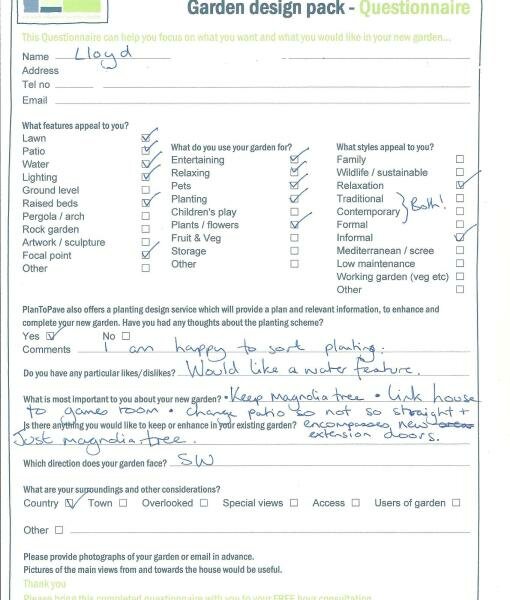 Garden design pack - Questionnaire
This Questionnaire can help you focus on what you want and what you would like in your new garden...
Name Lloyd
Address
Tel no
Email
What features appeal to you?
Lawn
Patio
Water
Lighting
Ground level
Raised beds
Pergola / arch
Rock garden
Artwork / sculpture
Focal point
Other
What do you use your garden for?
Entertaining
Relaxing
Pets
Planting
Children's play
Plants / flowers
Fruit & Veg
Storage
Other
What styles appeal to you?
Family
Wildlife / sustainable
Relaxation
Traditional
Contemporary
Both!
Formal
Informal
Mediterranean / scree
Low maintenance
Working garden (veg etc)
Other
PlanToPave also offers a planting design service which will provide a plan and relevant information, to enhance and
complete your new garden. Have you had any thoughts about the planting scheme?
Yes No
Comments I am happy to sort planting.
Do you have any particular likes/dislikes? Would like a water feature.
What is most important to you about your new garden? • Keep Magnolia tree • link house
to games room • change patio so not so straight +
encompasses new
extension doors.
Is there anything you would like to keep or enhance in your existing garden?
Just magnolia tree.
Which direction does your garden face? SW
What are your surroundings and other considerations?
Country Town Overlooked Special views Access Users of garden
Other
Please provide photographs of your garden or email in advance.
Pictures of the main views from and towards the house would be useful.
Thank you
Please bring this completed questionnaire with you to your FREE hour consultation